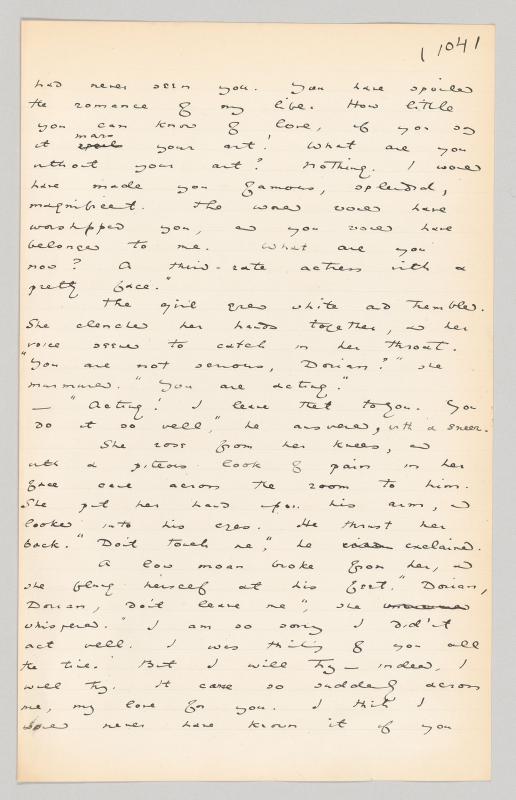 104
had never seen you. You have spoiled
the romance of my life. How little
you can know of love, if you say
mars
it your art! What are you
without your art? Nothing. I would
have made you famous, splendid,
magnificent. The world would have
worshipped you, and you would have
belonged to me. What are you
now? A third-rate actress with a
pretty face."
The girl grew white and trembled.
She clenched her hands together, and her
voice seemed to catch in her throat.
"You are not serious, Dorian?" she
murmured. "You are acting."
— "Acting! I leave that to you. You
do it so well," he answered, with a sneer.
She rose from her knees, and
with a piteous look of pain in her
face came across the room to him.
She put her hand upon his arm, and
looked into his eyes. He thrust her
back. "Don't touch me," he exclaimed.
A low moan broke from her, and
she flung herself at his feet. "Dorian,
Dorian, don't leave me", she
whispered. "I am so sorry I didn't
act well. I was thinking of you all
the time. But I will try — indeed, I
will try. It came so suddenly across
me, my love for you. I think I
would never have known it if you